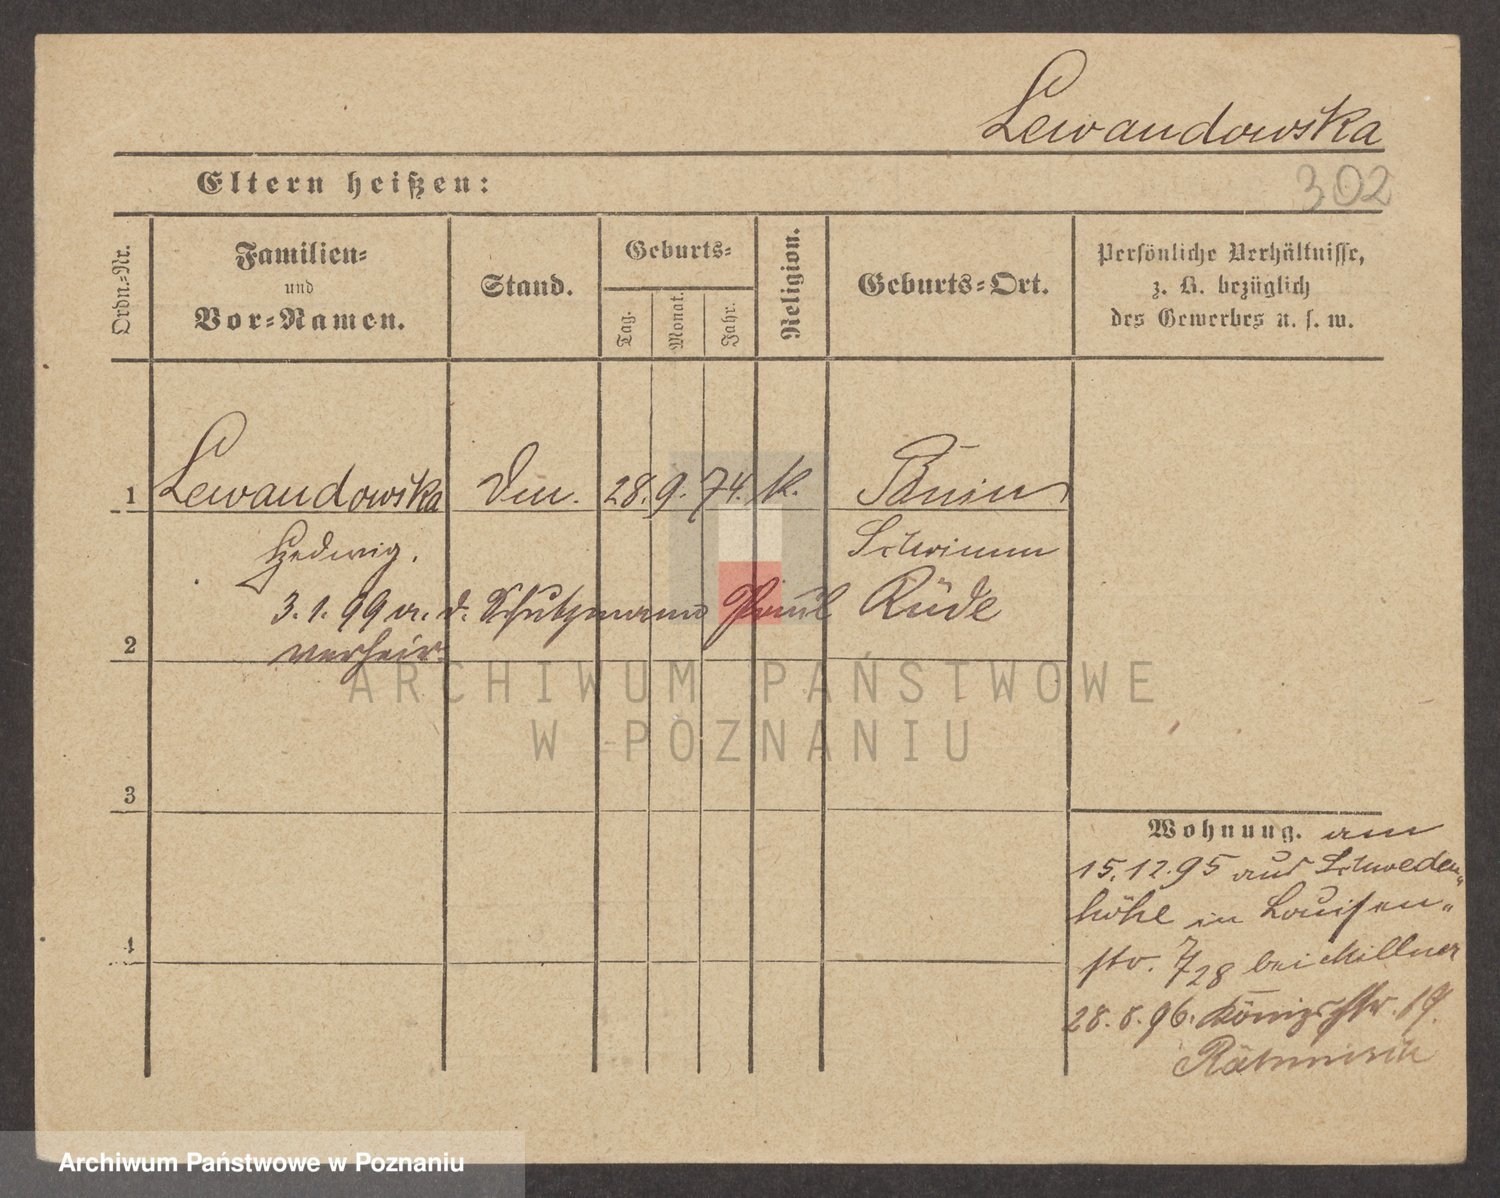 Lewandowska
302
Eltern heißen:
Ordn.-Nr.
Familien-
und
Vor-Namen.
Stand.
Geburts-
Tag.
Monat.
Jahr.
Religion.
Geburts-Ort.
Persönliche Verhältnisse,
z. B. bezüglich
des Gewerbes u. s. w.
1 Lewandowska 28. 9. 74. k.
Hedwig.
3. 1. 99 m. d. Schutzmann Paul Rüde
2 verheir.
3
4
Wohnung. am
15.12.95 aus Schweden-
höhe in Louisen-
str. 7/28 bei Millner
28. 8. 96. Königstr. 19.
ARCHIWUM PAŃSTWOWE
W POZNANIU
Archiwum Państwowe w Poznaniu